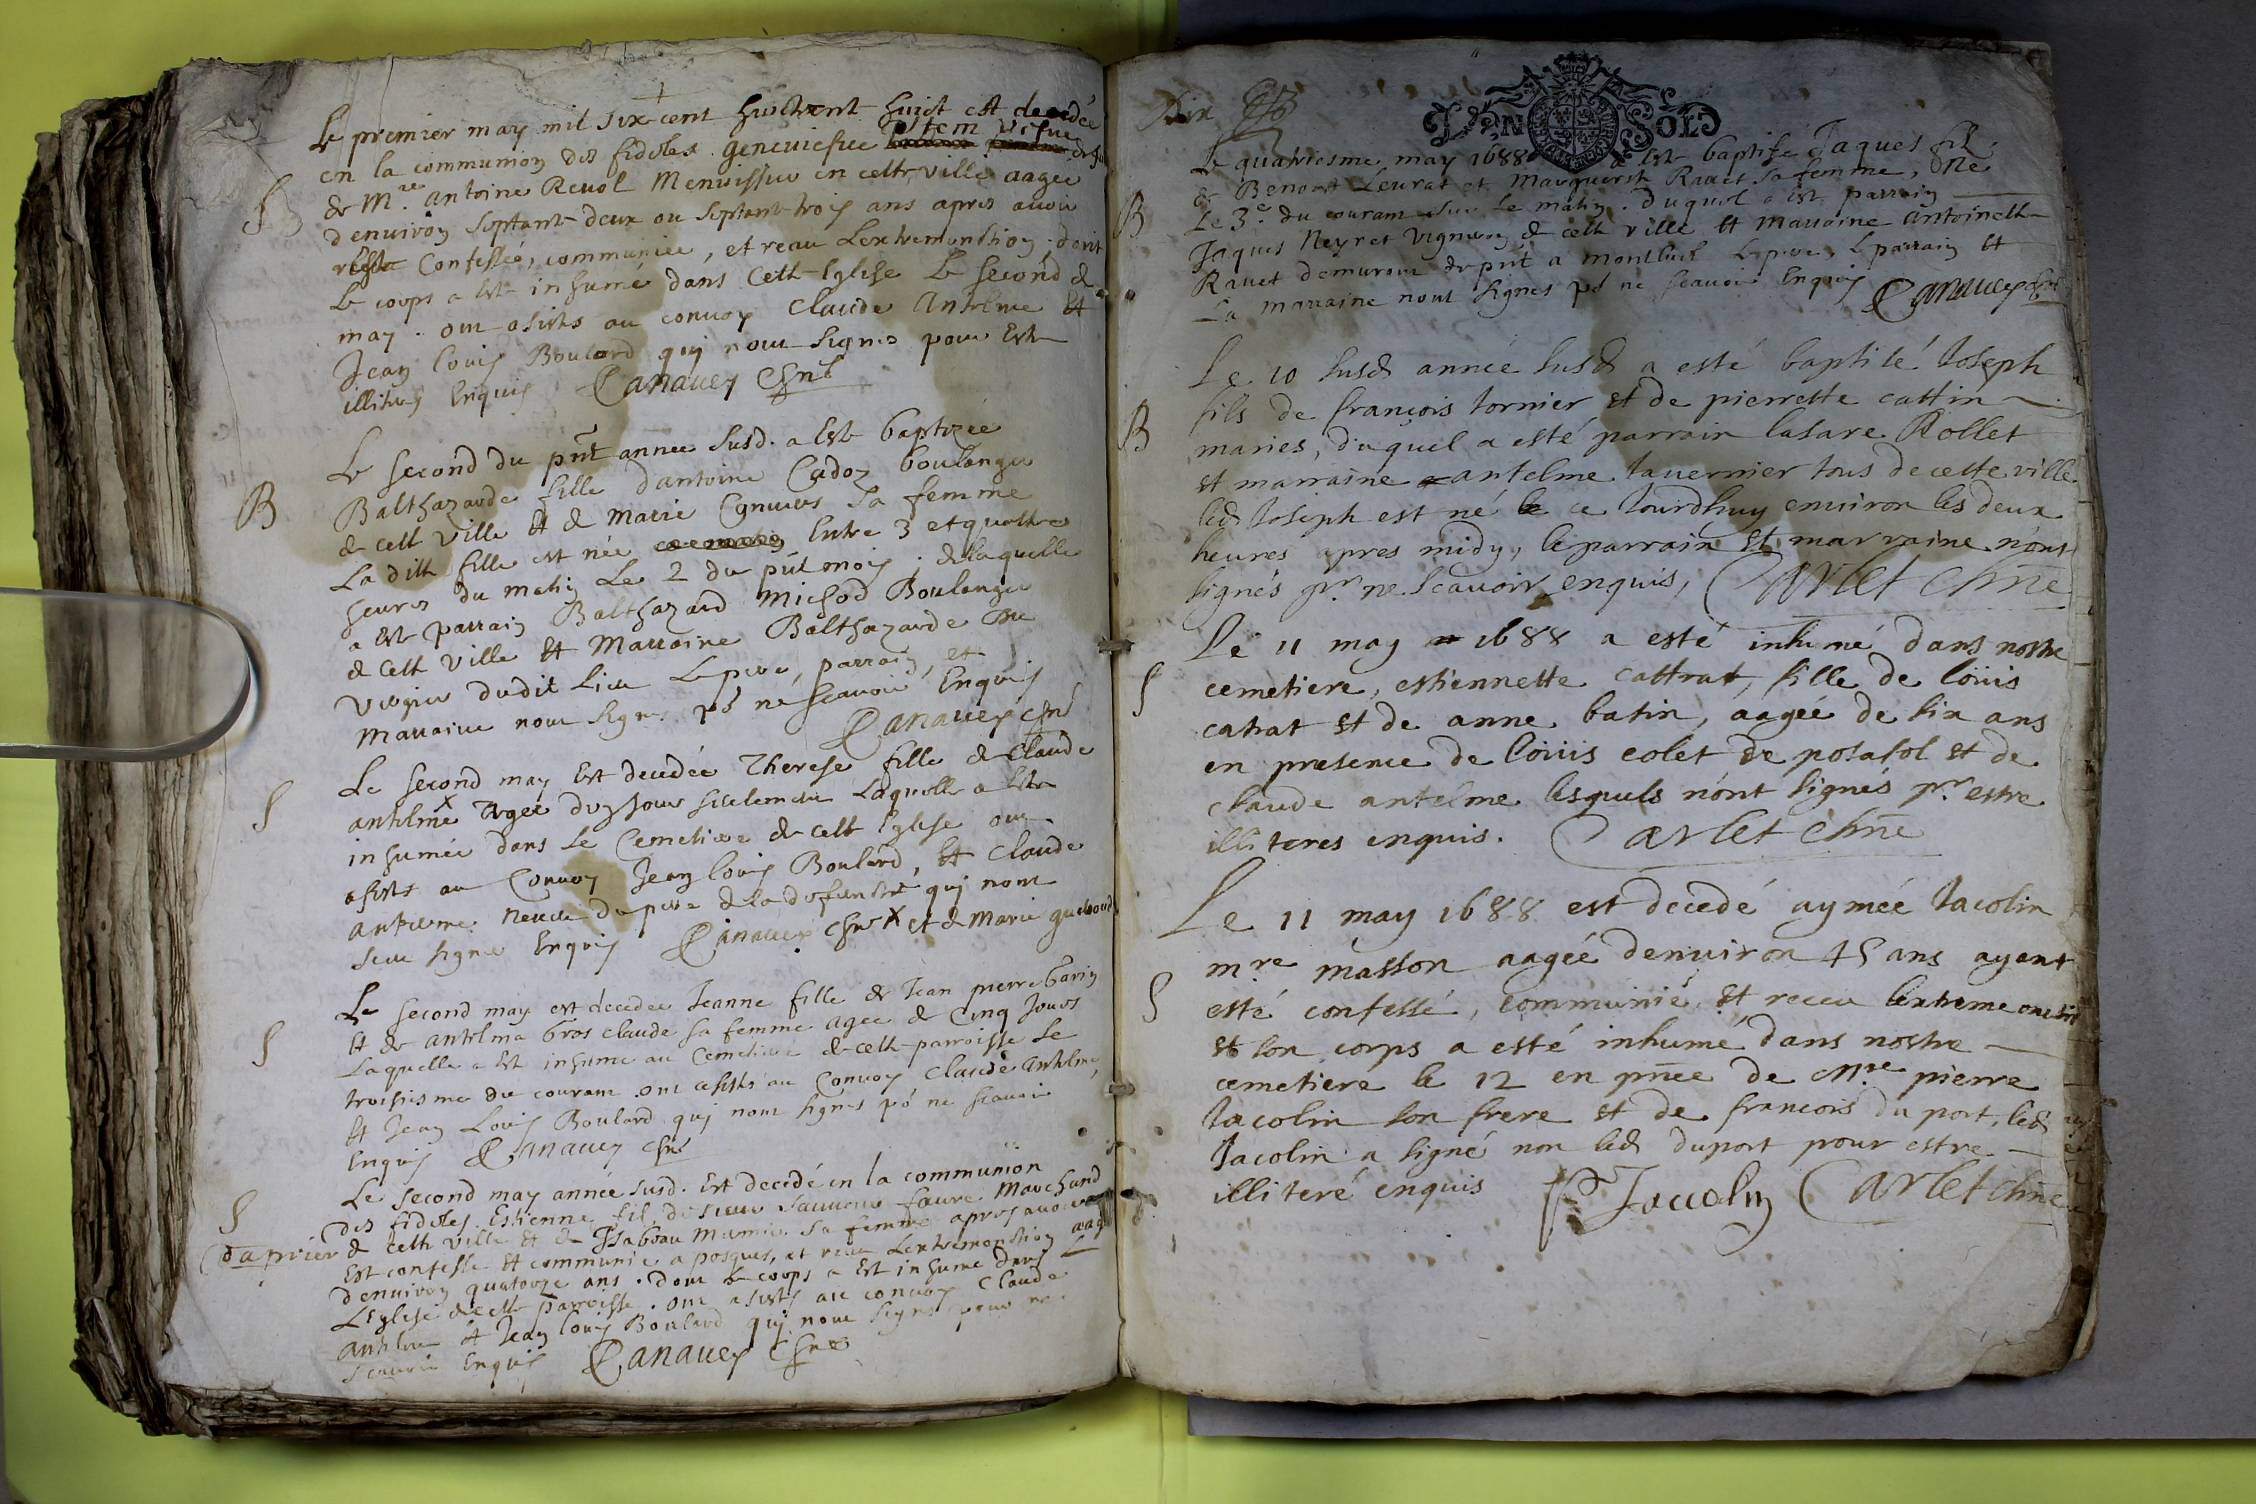 Le premier may mil six cent huictant huict est decedée
en la communion des fideles geneviefve Item vefve
de M.re antoine Revol Menuissier en cette ville aagée
S
denviron septant deux ou septant trois ans apres avoir
esté Confessée, communiée, et receu Lextremonction dont
Le corps a esté inhumé dans Cette Eglise Le second de
may. ont asistés au convoy Claude Antelme Et
Jean Louis Boulard qui n'ont signes pour Estre
illitrés Enquis Canavey chne
Le second du pnt annee susd. a Esté baptizée
Balthazarde fille dantoine Cadoz boulanger
B
de cette ville Et de Marie sa femme
La ditte fille est née Entre 3 et quattre
heures du matin Le 2 du pnt mois, de laquelle
a Esté parrain Balthazard Michod Boulanger
de Cette ville Et Marraine Balthazarde
Vergier dudit Lieu Le pere, parrain, et
Marraine n'ont signes pr ne sçavoir Enquis
Canavey chne
Le second may Est decedée Therese fille de Claude
S
antelme x Agée dix jours seulement Laquelle a Esté
inhumée dans Le Cemetiere de cette Eglise ont
asistés au Convoy Jean Louis Boulard, Et Claude
antelme neveu du pere de la defuncte qui nont
sceu signer Enquis Canavey chne x et de Marie
Le second may est decedée Jeanne fille de Jean pierre Garin
S
Et de antelma gros claude sa femme agee de Cinq Jours
Laquelle a Esté inhumé au Cemetiere de cette parroisse Le
troisiesme du courant ont asistés au Convoy Claude Antelme,
Et Jean Louis Boulard qui n'ont signes pr ne sçavoir
Enquis Canavey chne
Le second may année susd. Est decedé en la communion
S
des fideles Estienne fils de sieur sauveur faure Marchand
de cette ville Et de Isabeau sa femme apres avoir
Est confessé Et communié a pasques, et receu Lextremonction aagé
denviron quatorze ans. dont Le corps a Esté inhumé dans
LEglise de cette parroisse. ont asistés au convoy Claude
antelme Et Jean Louis Boulard qui n'ont signes pour ne
sçavoir Enquis Canavey chne
SOLS
Le quatriesme may 1688 Est baptise Jaques fils
de Benoist Leurat et Marguerite Ravet sa femme, Né
B
Le 3e du courant sur Le matin. Duquel a Esté parrain
Jaques Neyret vigneron de cette ville Et Marraine antoinette
Ravet demurant de pnt a montluel Le pere, Le parrain Et
La marraine nont signes pr ne sçavoir Enquis Canavey chne
Le 10 susd année susd a esté baptisé Joseph
fils de françois tornier et de pierrette cattin
B
mariés, duquel a esté parrain lasare Rollet
et marraine antelme tavernier tous de cette ville
led Joseph est né ce Jourdhuy environ les deux
heures apres midy, le parrain et marraine n'ont
signés pr ne scavoir enquis, Carlet chne
Le 11 may 1688 a esté inhumé dans nostre
S
cemetiere, estiennette cattrat, fille de loüis
catrat et de anne batin, aagée de six ans
en presence de loüis colet de posafol et de
claude antelme lesquels n'ont signés pr estre
illiteres enquis. Carlet chne
Le 11 may 1688 est decedé aymée Jacolin
mre masson aagée denviron 45 ans ayant
S
esté confessé, communié, et receu lextreme onction
et son corps a esté inhumé dans nostre
cemetiere le 12 en pnce de Mre pierre
Jacolin son frere et de francois du port, led
Jacolin a signé non led duport pour estre
illiteré enquis P Jacolin Carlet chne